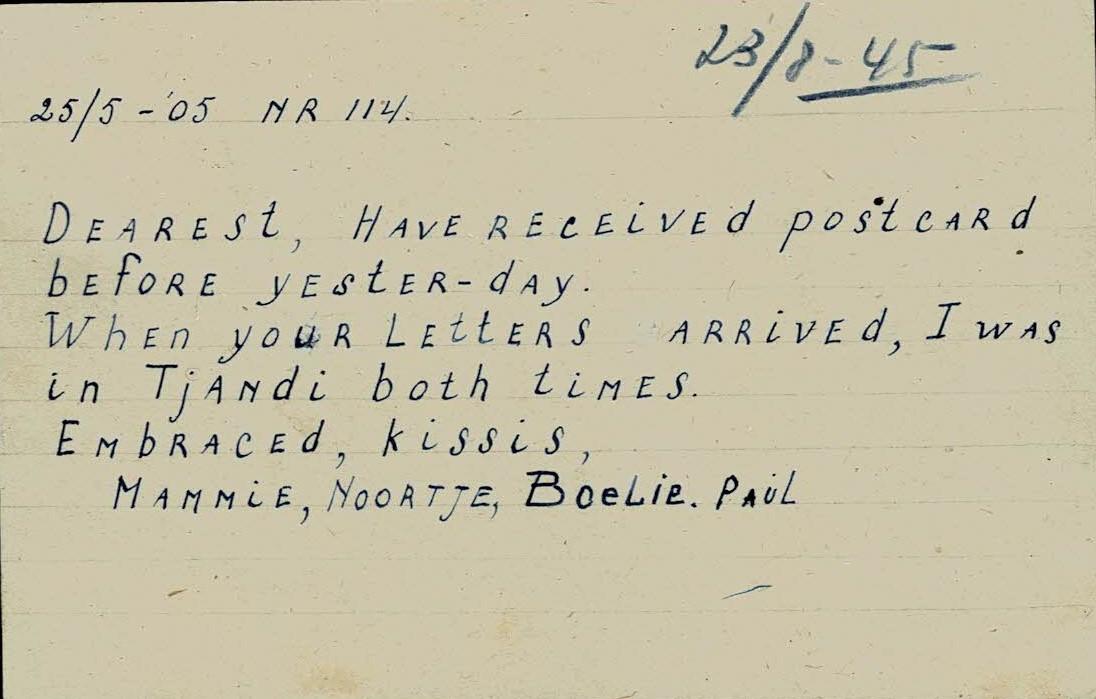 23/8-45
25/5-'05 NR 114.
DEAREST, HAVE RECEIVED postCARd
bEfORE yEstER-dAy.
WhEn yoUR LEttERS ARRiVEd, I WAS
in TjANdi both tiMES.
EMbRACEd, kissis,
MAMMiE, NOORTJE, BoeLie. PAUL